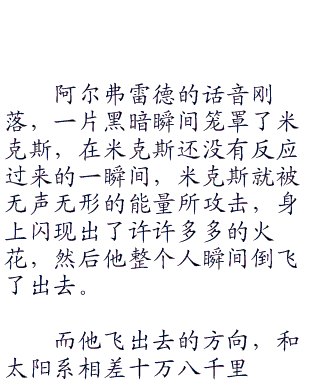 阿尔弗雷德的话音刚
落，一片黑暗瞬间笼罩了米
克斯，在米克斯还没有反应
过来的一瞬间，米克斯就被
无声无形的能量所攻击，身
上闪现出了许许多多的火
花，然后他整个人瞬间倒飞
了出去。
而他飞出去的方向，和
太阳系相差十万八千里